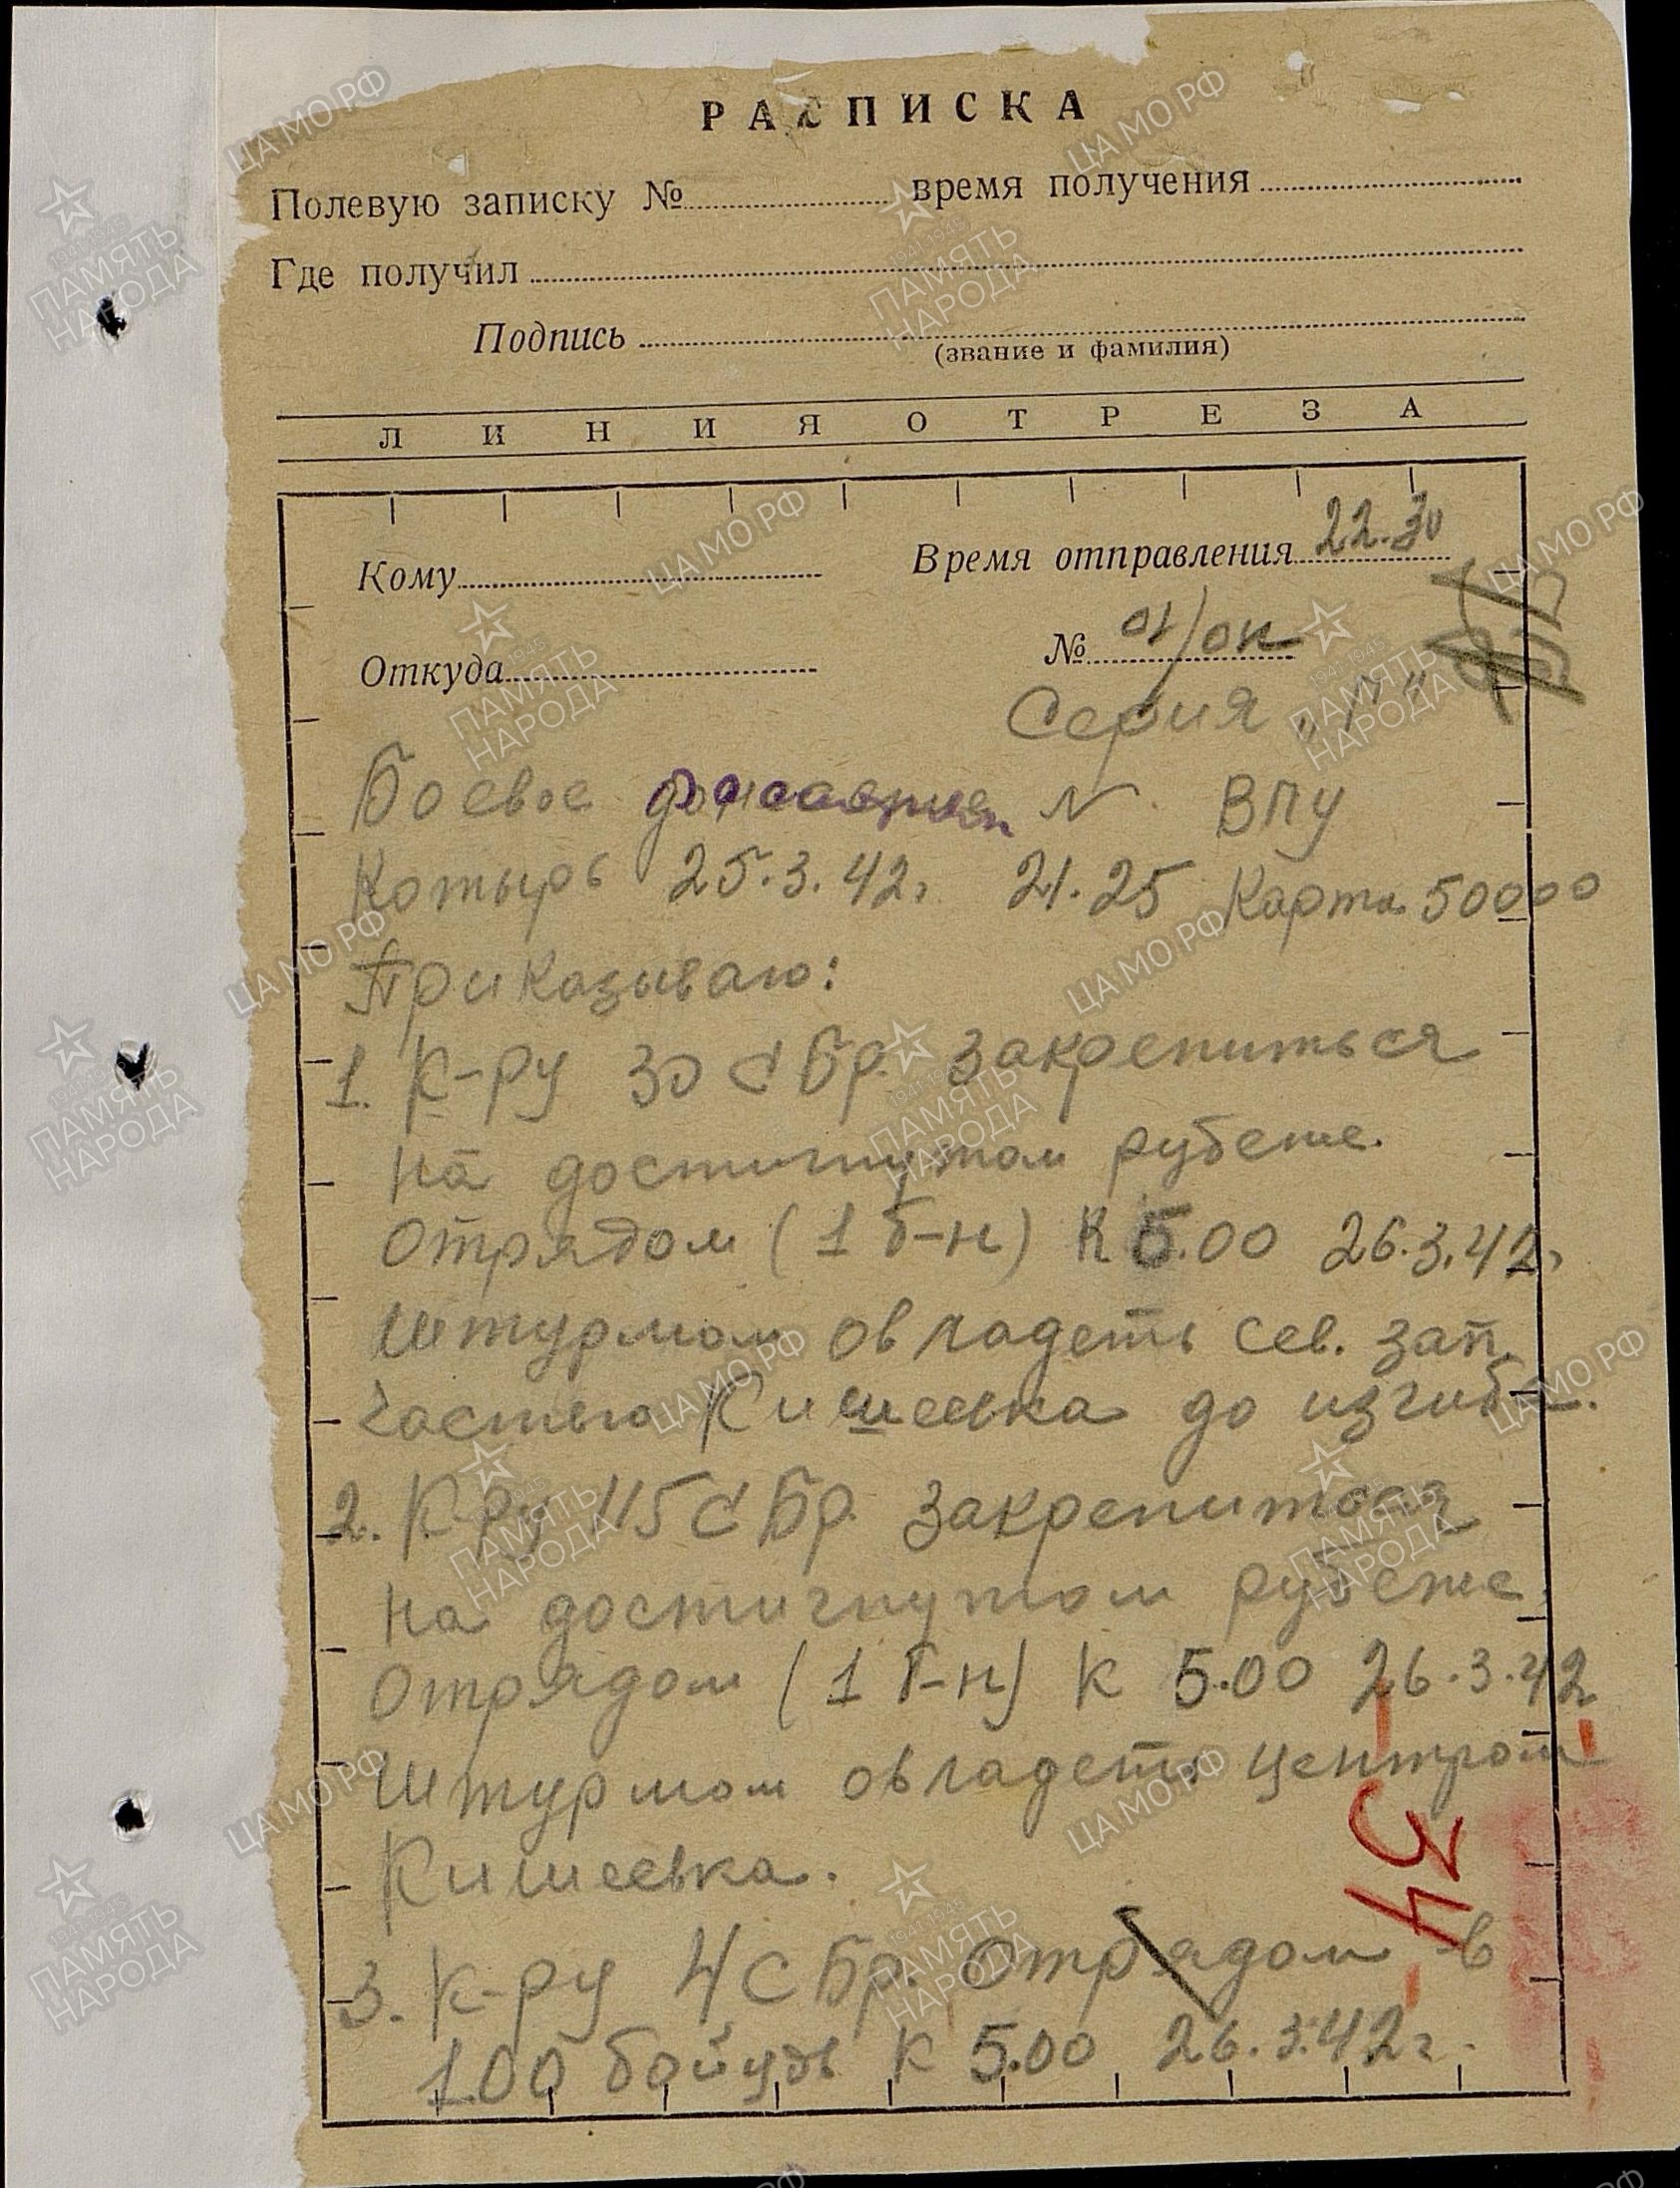 РАСПИСКА
Полевую записку № время получения
Где получил
Подпись
(звание и фамилия)
ЛИНИЯ ОТРЕЗА
Кому Время отправления 22.30
Откуда № 01/оп
Серия "Г"
Боевое N ВПУ
Котырь 25.3.42г 21.25 Карта 50000
Приказываю:
1. К-ру 30 СБр. закрепиться
на достигнутом рубеже.
Отрядом (1 б-н) к 5.00 26.3.42г
штурмом овладеть сев. зап.
частью Кишеевка до изгиба.
2. К-ру 115 СБр. закрепиться
на достигнутом рубеже
Отрядом (1 б-н) к 5.00 26.3.42
штурмом овладеть центром
Кишеевка.
34
3. К-ру 4 СБр. Отрядом в
100 бойцов к 5.00 26.3.42г.
ЦА МО РФ
1941-1945
ПАМЯТЬ
НАРОДА